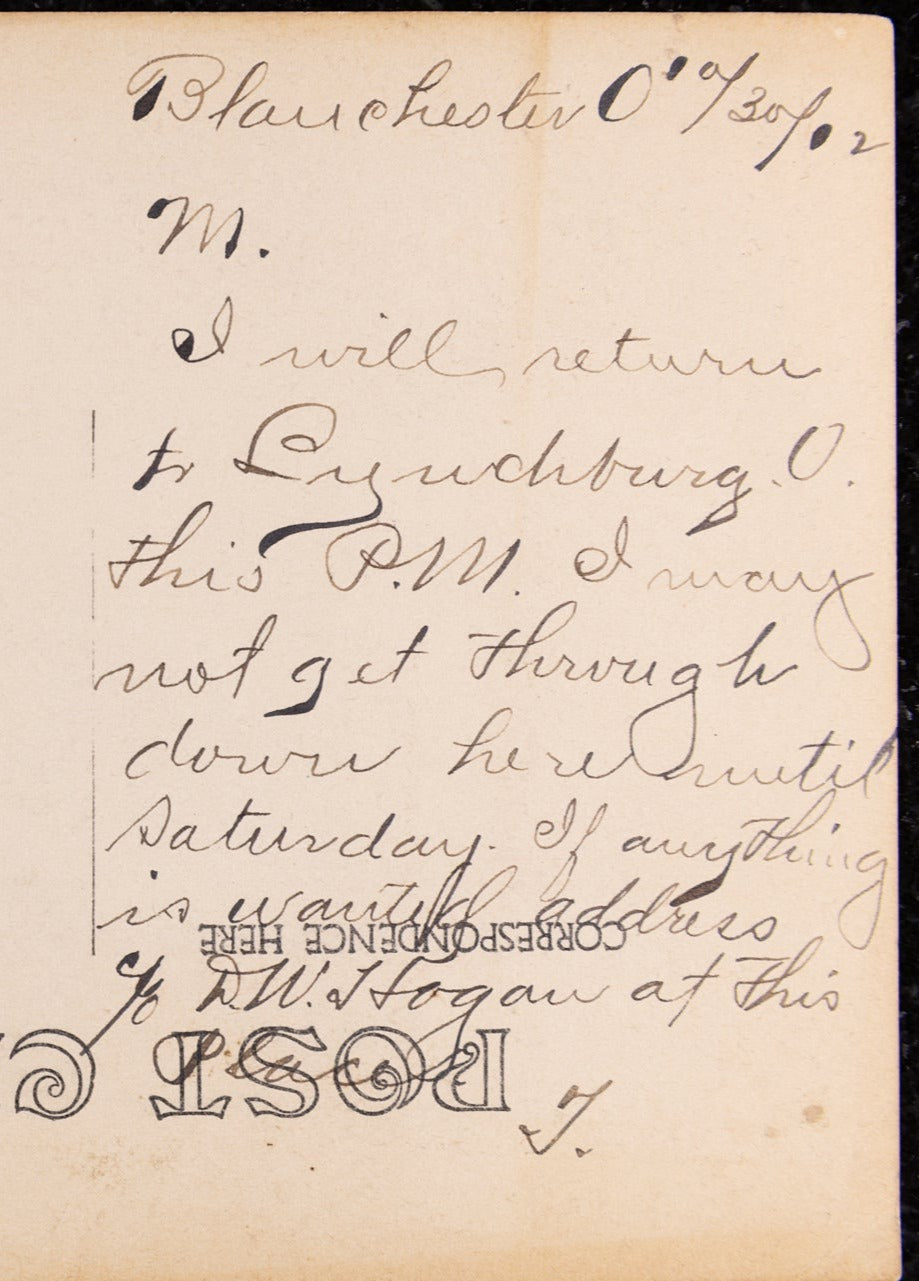 Blanchester O. 9/30/02
M.
I will return
to Lynchburg. O.
this P.M. I may
not get through
down here until
Saturday. If anything
is wanted address
c/o D.W. Hogan at this
Place
T.
CORRESPONDENCE HERE
POST CA